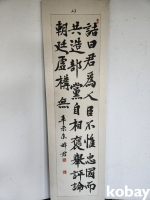 詰曰君爲人臣不惟忠國而
共造部黨自相褒擧評論
朝廷虛構無
kobay